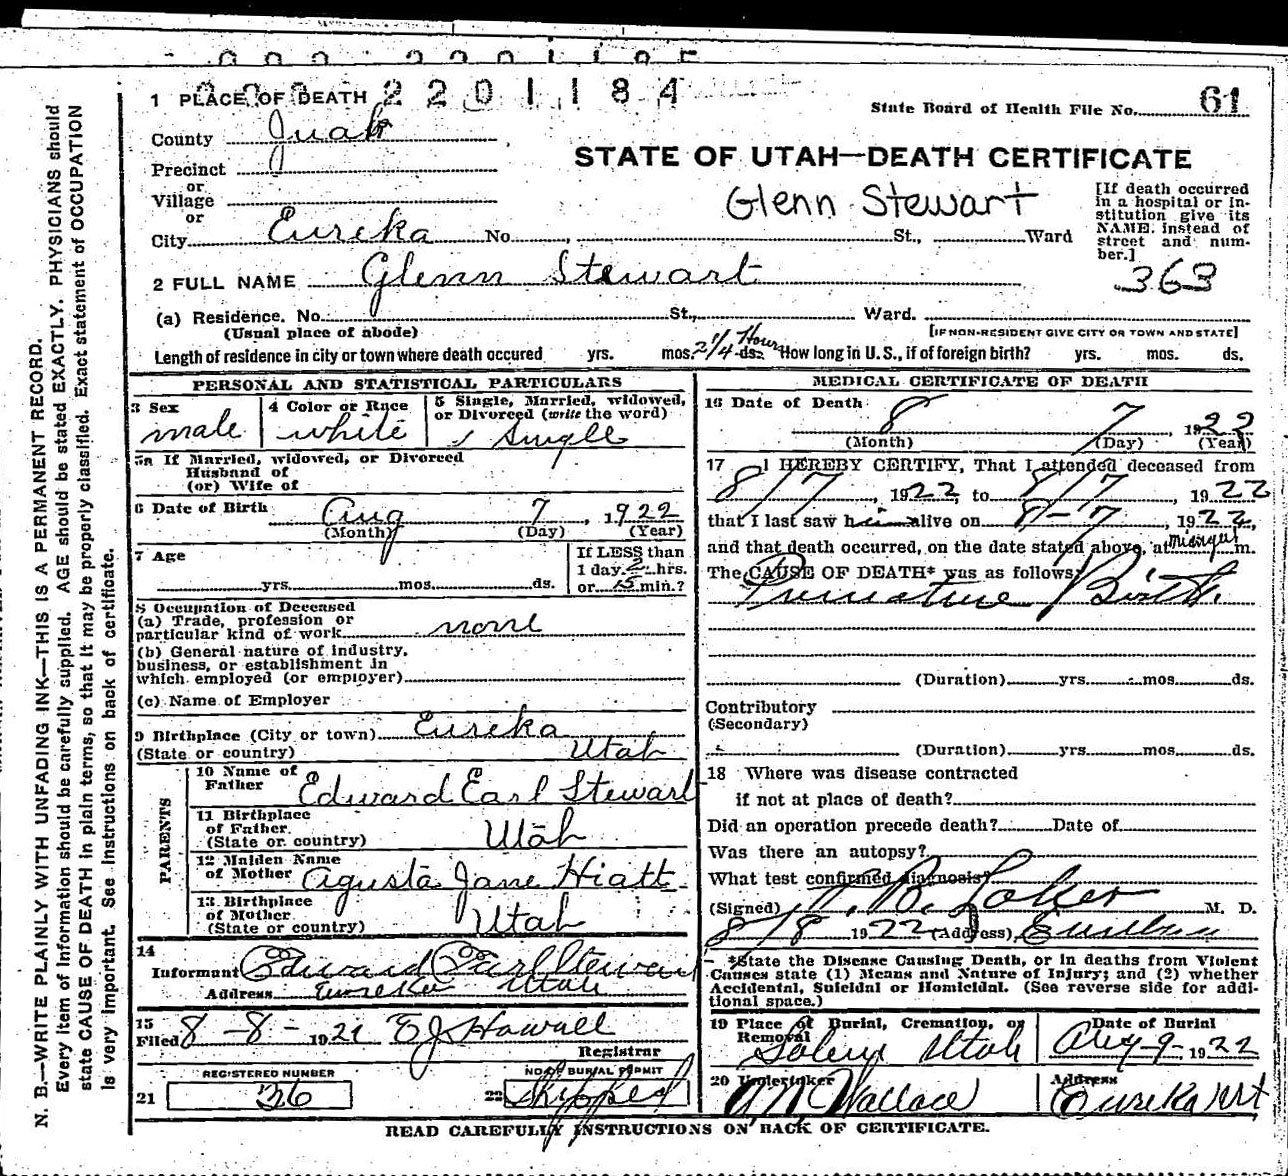 2201184
1 PLACE OF DEATH
State Board of Health File No. 61
County Juab
STATE OF UTAH—DEATH CERTIFICATE
Precinct
or
Village
Glenn Stewart
[If death occurred in a hospital or in-
stitution give its
NAME. instead of
street and num-
ber.]
or
City Eureka No. , St., Ward
363
2 FULL NAME Glenn Stewart
(a) Residence. No. St., Ward.
(Usual place of abode)
[IF NON-RESIDENT GIVE CITY OR TOWN AND STATE]
Length of residence in city or town where death occured yrs. mos. 2 1/4 Hours ds. How long in U.S., if of foreign birth? yrs. mos. ds.
PERSONAL AND STATISTICAL PARTICULARS
3 Sex male
4 Color or Race white
5 Single, Married, widowed,
or Divorced (write the word)
Single
5a If Married, widowed, or Divorced
Husband of
(or) Wife of
6 Date of Birth Aug 7, 1922
(Month) (Day) (Year)
7 Age
yrs. mos. ds.
If LESS than
1 day 2 hrs.
or 15 min.?
8 Occupation of Deceased
(a) Trade, profession or
particular kind of work none
(b) General nature of industry,
business, or establishment in
which employed (or employer)
(c) Name of Employer
9 Birthplace (City or town) Eureka
(State or country) Utah
PARENTS
10 Name of
Father Edward Earl Stewart
11 Birthplace
of Father
(State or country) Utah
12 Maiden Name
of Mother Agusta Jane Hiatt
13 Birthplace
of Mother
(State or country) Utah
14
Informant Edward Earl Stewart
Address Eureka Utah
15
Filed 8-8-1921 E J Howell
Registrar
REGISTERED NUMBER
21 36
NO. OF BURIAL PERMIT
22 Shipped
MEDICAL CERTIFICATE OF DEATH
16 Date of Death 8 7, 1922
(Month) (Day) (Year)
17 I HEREBY CERTIFY, That I attended deceased from
8/7, 1922, to 8/7, 1922
that I last saw him alive on 8-7, 1922,
and that death occurred, on the date stated above, at m.
The CAUSE OF DEATH* was as follows:
Premature Birth.
(Duration) yrs. mos. ds.
Contributory
(Secondary)
(Duration) yrs. mos. ds.
18 Where was disease contracted
if not at place of death?
Did an operation precede death? Date of
Was there an autopsy?
What test confirmed diagnosis?
(Signed) M. D.
8/8 1922 (Address) Eureka
*State the Disease Causing Death, or in deaths from Violent
Causes state (1) Means and Nature of Injury; and (2) whether
Accidental, Suicidal or Homicidal. (See reverse side for addi-
tional space.)
19 Place of Burial, Cremation, or
Removal
Salem Utah
Date of Burial
Aug 9 1922
20 Undertaker
Wallace
Address
Eureka Ut
READ CAREFULLY INSTRUCTIONS ON BACK OF CERTIFICATE.
N. B.—WRITE PLAINLY WITH UNFADING INK—THIS IS A PERMANENT RECORD.
Every item of Information should be carefully supplied. AGE should be stated EXACTLY. PHYSICIANS should
state CAUSE OF DEATH in plain terms, so that it may be properly classified. Exact statement of OCCUPATION
is very important. See Instructions on back of certificate.